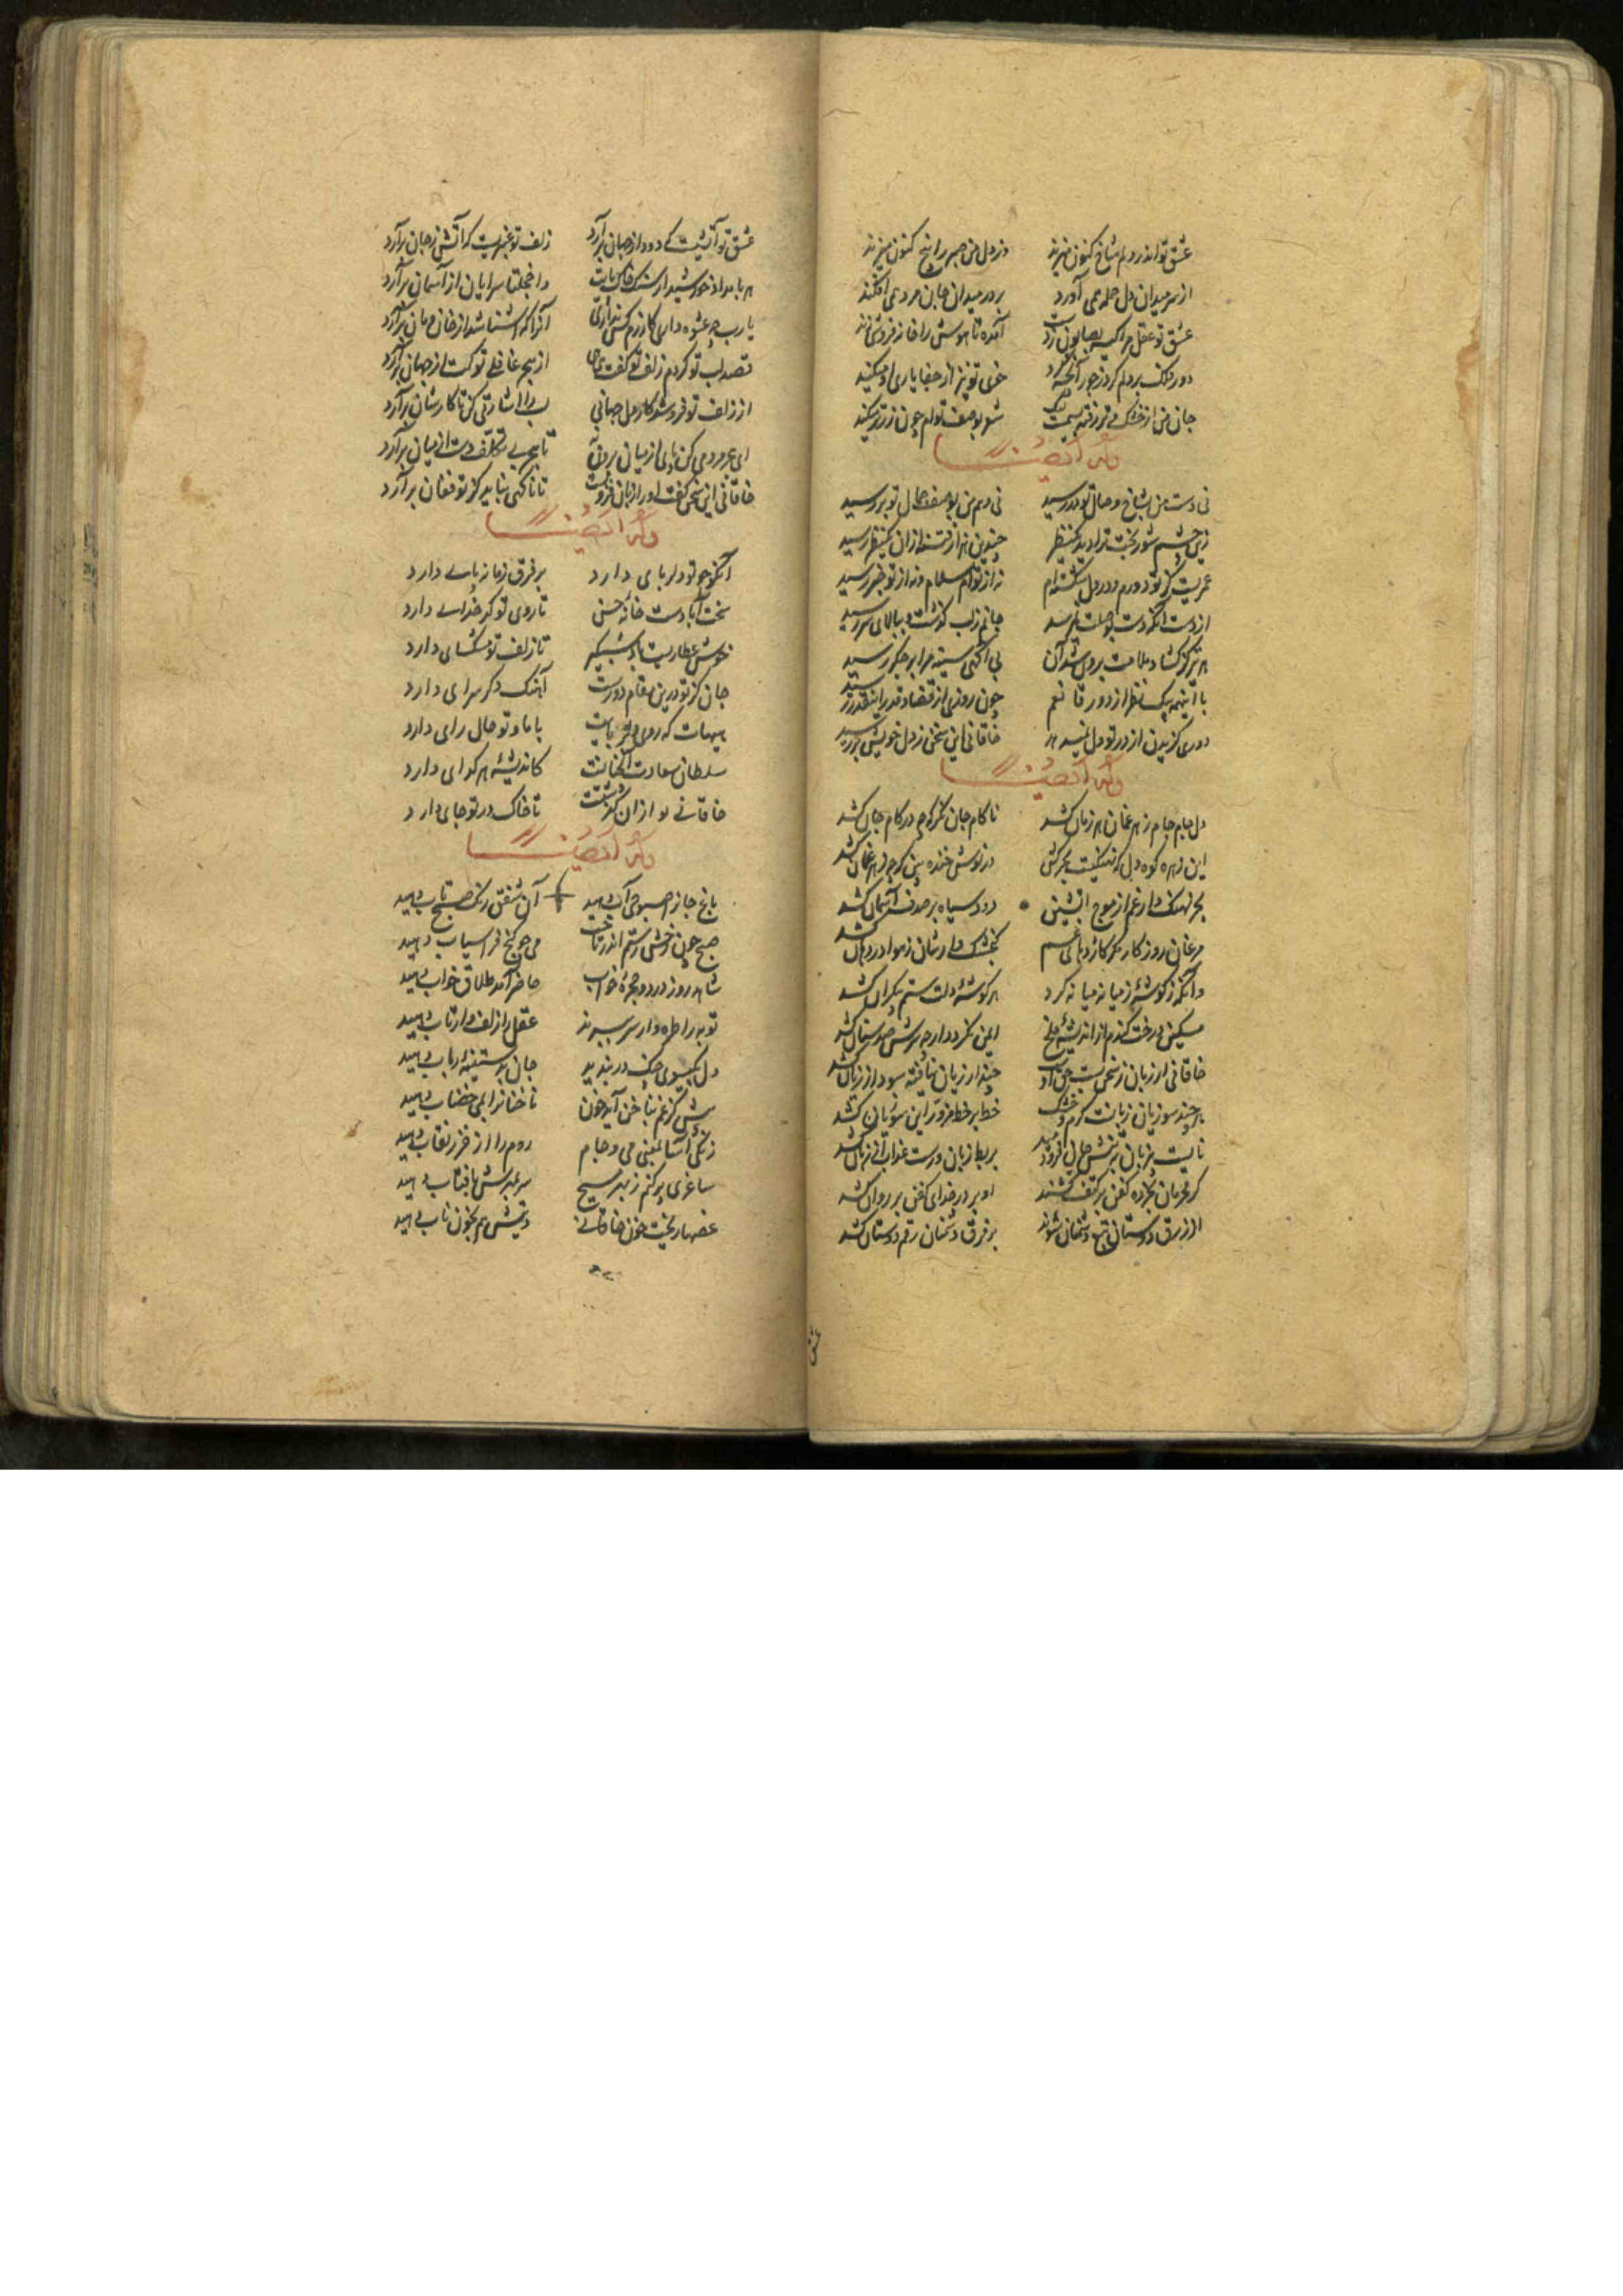 عشق تو اندر دلم شاخ کنون میزند وز دل من صبر را بیخ کنون میزند
از سر میدان دل حمله همی آورد بر در میدان جان مردمی افکند
عشق تو عقل مرا کیسه بصابون زدست آمده تا هوش را خانه فروشی زند
دور فلک بر دلم کرد ز جور آنچه کرد خوی تو نیز از جفا یاری او میکند
جان من از خشک تر رفته
وله ایضا
نی دست من بشاخ وصال تو در رسید نی وهم من بوصف جمال تو بر رسید
زین چشم شور بخت ترا دید یکنظر چندین هزار فتنه ازان یکنظر رسید
عمریست کز تو دورم و در دل شکسته‌ام نه از توام سلام و نه از تو خبر رسید
از دست آنکه دست بوصلت نمیرسد جانم ز لب گذشت و ببالای سر رسید
هر تیر کز گشاد ملامت برون شد آن بی آگهی سینه مرا بر جگر رسید
با اینهمه بیک نظر از دور قانعم چون روزی از قضا و قدر اینقدر رسید
دوری گزیدن از در تو دل نمیدهد خاقانی این سخن ز دل خویش بر رسید
وله ایضا
دل جام جام زهر غمان هر زمان کشد ناکام جان نگر که چه در کام جان کشد
این زهره کوه دل که نهنگیست بحرکش در نوش خنده بین که چه زهر غمان کشد
بحر نهنگ دار غم از موج آتشین دود سیاه بر صدف آسمان کشد
مرغان روزگار نگر کاژدهای غم گنجشک وارشان ز هوا در دهان کشد
وآنکه ز گوشهٔ ز میانه میانه کرد هر گوشهٔ دلت ستم بیکران کشد
مسکین درخت گندم از اندیشهٔ ملخ ایمن نگردد ارچه سرش صد سنان کشد
خاقانی ار زبان ز سخن بست حق اوست چند از زبان نیافته سود از زبان کشد
هر چند سوزیان زبانست گرم و خشک خط بر خط مزور این سوزیان کشد
نایست بیزبان تنش جان فرو دمید بربط زبان ورست عذاب از زبان کشد
گر محرمان بکوچه کفن بر کتف کشند او بر در خدای کفن بر روان کشد
ار زرق دوستان تبع دشمنان شوند بر فرق دشمنان رقم دوستان کشد
عشق تو آتشیست که دود از جهان برآرد زلف تو عنبریست که آتش ز جان برآرد
هر بامداد خورشید از رشک خاک پایت واخجلتا سرایان از آسمان برآرد
یا رب چه عشوه داری کازرم کس نداری آنرا که آشنا شد از خان و مان برآرد
قصد لبت تو کردم زلف تو گفت هی هی از هجر غافلی تو کت از جهان برآرد
از زلف تو فروشد کار دل جهانی لب را اشارتی کن تا کارشان برآرد
ای هجر مردمی کن پای از میان برون نه تا هجر بی تکلف دست از میان برآرد
خاقانی این سخن گفت تا ناگهی نباید کز تو فغان برآرد
وله ایضا
آنکو چو تو دلربای دارد بر فرق زمانه پای دارد
سخت آبادست خانهٔ حسن تا روی تو کدخدای دارد
خوش عطاریست باد شبگیر تا زلف تو مشکسای دارد
جان کز تو درین مقام دورست آهنگ دگر سرای دارد
هیهات که روی دلربایت با ما و تو حال رای دارد
سلطان سعادت آنچنانست کاندیشهٔ هر گدای دارد
خاقانی تو ازان گذشتست تا خاک در تو جای دارد
وله ایضا
باغ جان را صبوحی آب دهید آن شفق رنگ صبح تاب دهید
صبح چون رخش رستم اندر تاخت می چو گنج فراسیاب دهید
شاهد روز درد و حجرهٔ خواب حاضر آمد طلاق خواب دهید
توبه را طره وار سر ببرند عقل را زلف وار تاب دهید
دل بگیسوی چنگ در بندید جان بدستینهٔ رباب دهید
پیش کز غم بناخن آید خون ناخنان را بمی خضاب دهید
زنگی آسا بمعنی می و جام روم را از خزر نقاب دهید
ساغری پر کنم ز بهر صبیح سر بمهرش بآفتاب دهید
غصها ریخت خون خاقانی دیتش هم بخون ناب دهید